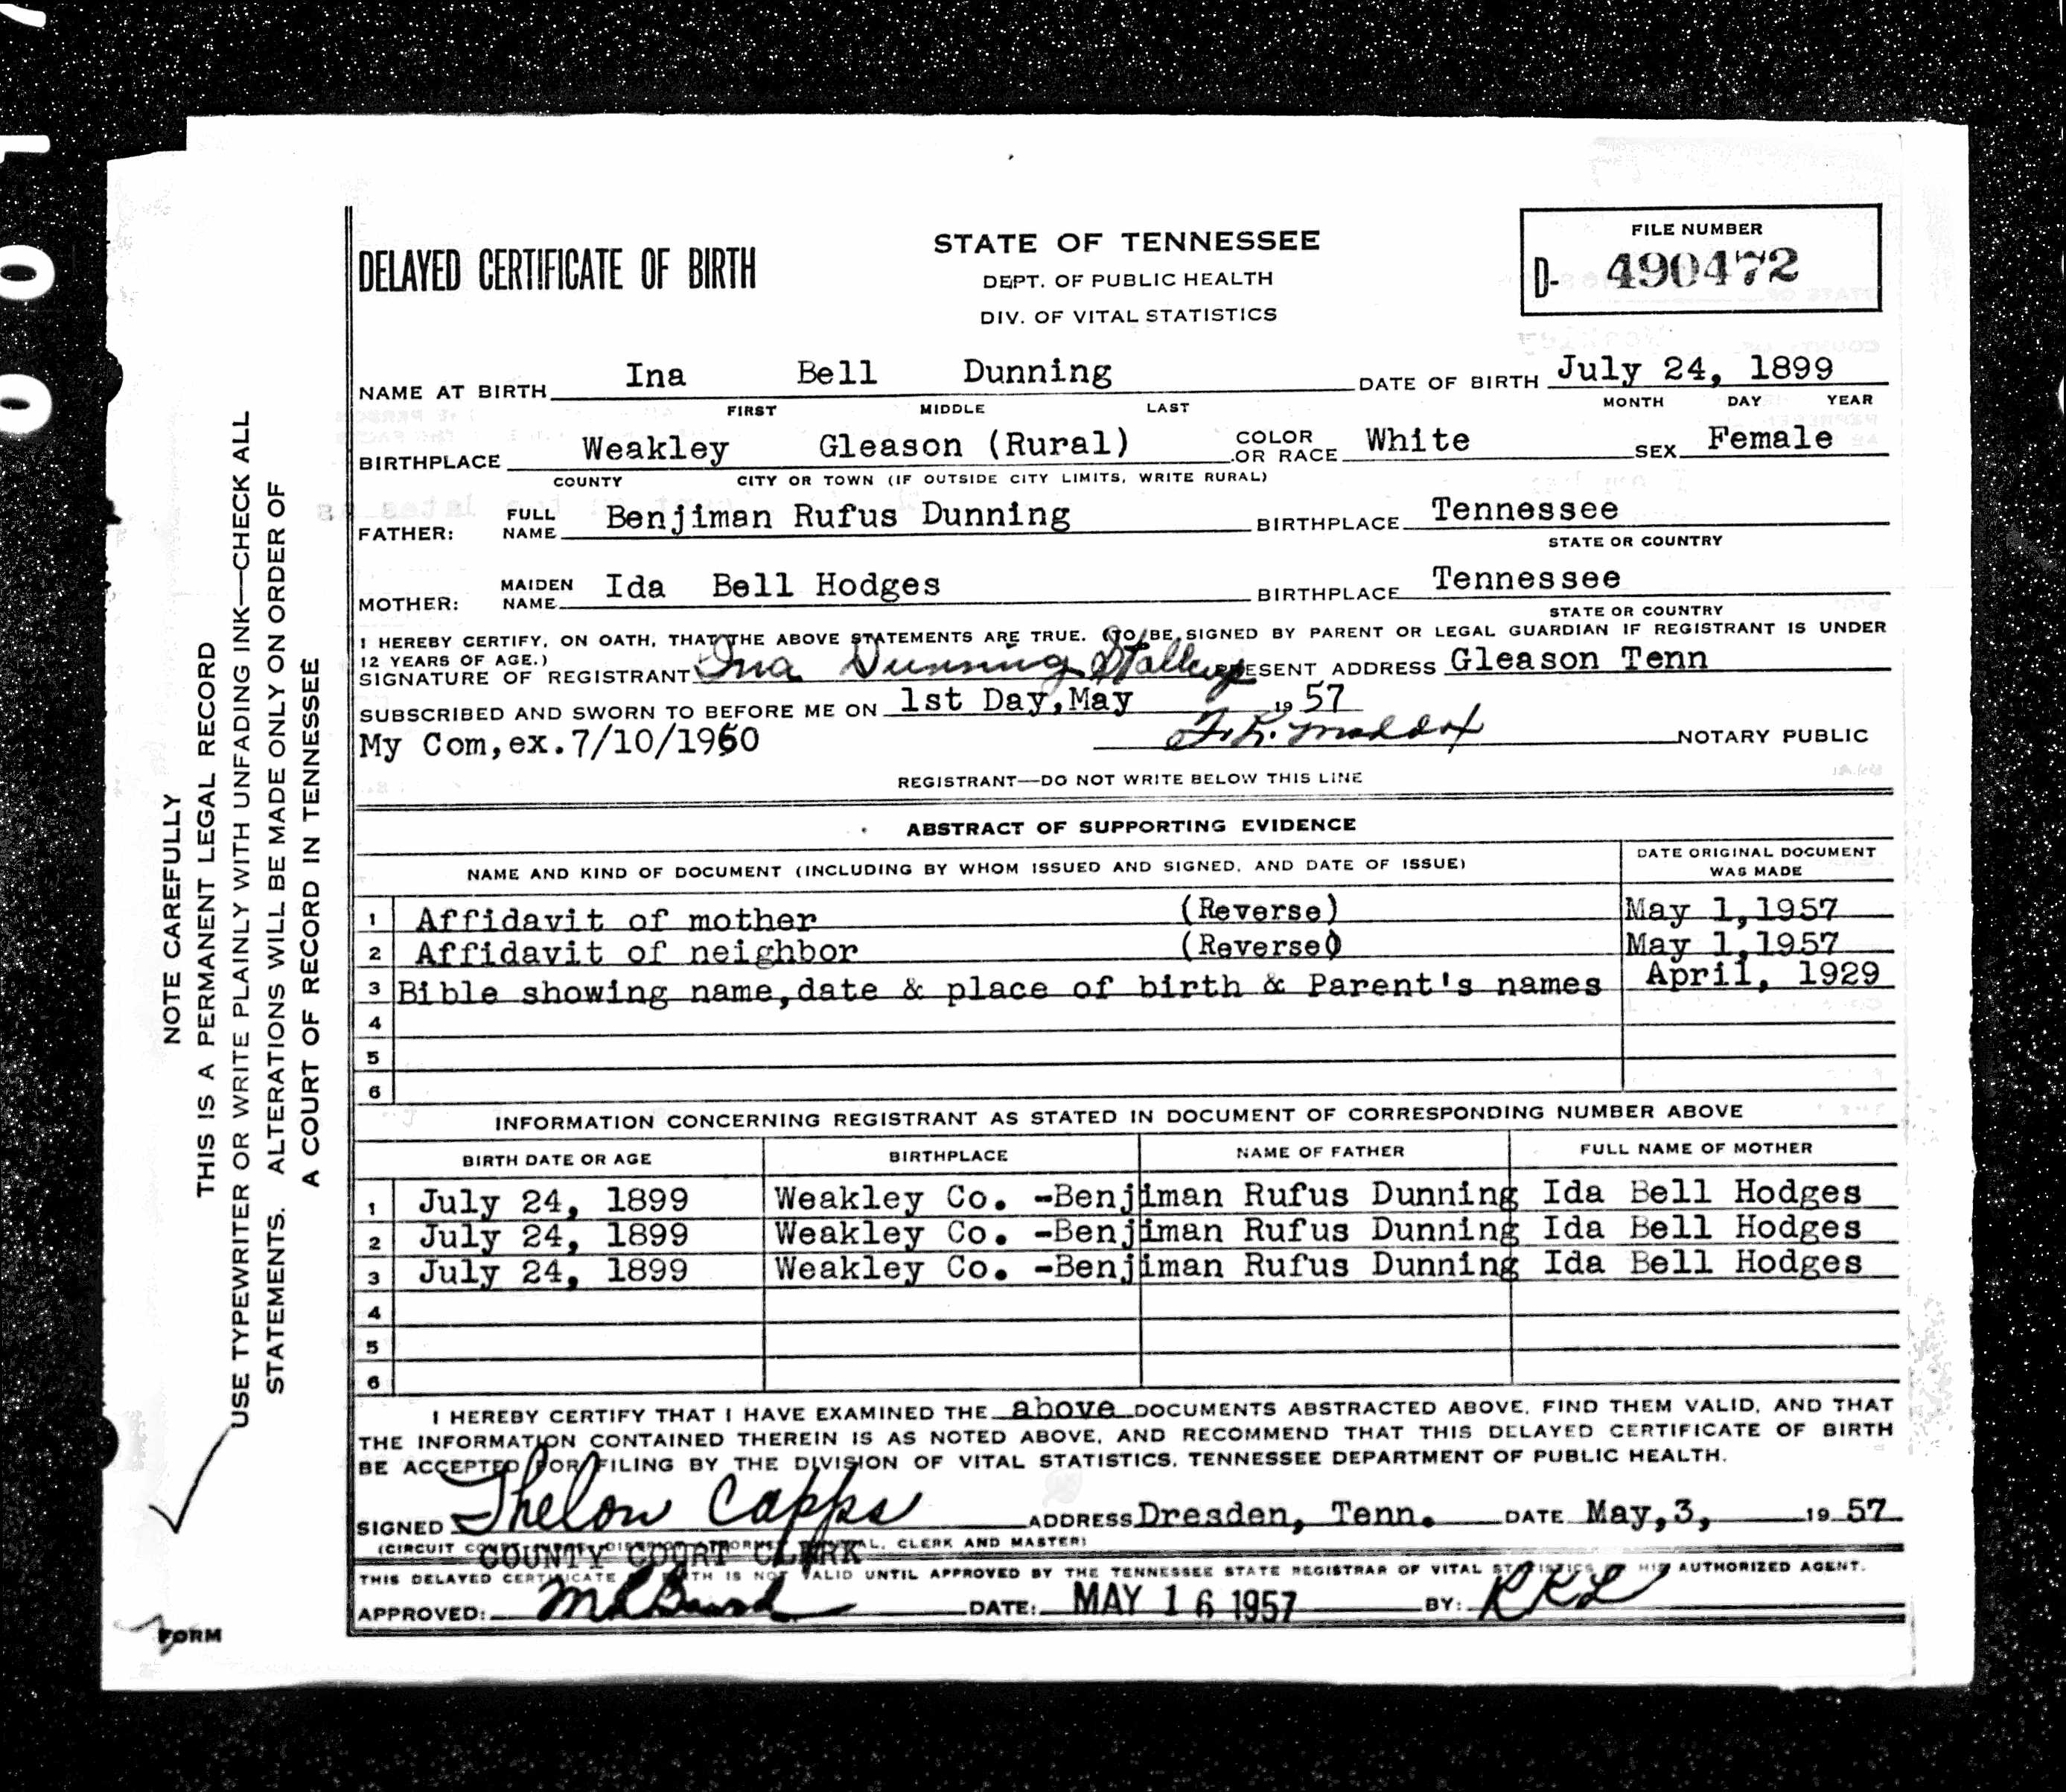 DELAYED CERTIFICATE OF BIRTH
STATE OF TENNESSEE
DEPT. OF PUBLIC HEALTH
DIV. OF VITAL STATISTICS
FILE NUMBER
D- 490472
NAME AT BIRTH Ina Bell Dunning DATE OF BIRTH July 24, 1899
FIRST MIDDLE LAST MONTH DAY YEAR
BIRTHPLACE Weakley Gleason (Rural) COLOR OR RACE White SEX Female
COUNTY CITY OR TOWN (IF OUTSIDE CITY LIMITS, WRITE RURAL)
FATHER: FULL NAME Benjiman Rufus Dunning BIRTHPLACE Tennessee
STATE OR COUNTRY
MOTHER: MAIDEN NAME Ida Bell Hodges BIRTHPLACE Tennessee
STATE OR COUNTRY
I HEREBY CERTIFY, ON OATH, THAT THE ABOVE STATEMENTS ARE TRUE. (TO BE SIGNED BY PARENT OR LEGAL GUARDIAN IF REGISTRANT IS UNDER
12 YEARS OF AGE.)
SIGNATURE OF REGISTRANT Ina Dunning Stallcup PRESENT ADDRESS Gleason Tenn
SUBSCRIBED AND SWORN TO BEFORE ME ON 1st Day, May 19 57
My Com, ex. 7/10/1960 Maddox NOTARY PUBLIC
REGISTRANT—DO NOT WRITE BELOW THIS LINE
ABSTRACT OF SUPPORTING EVIDENCE
NAME AND KIND OF DOCUMENT (INCLUDING BY WHOM ISSUED AND SIGNED, AND DATE OF ISSUE) DATE ORIGINAL DOCUMENT WAS MADE
1 Affidavit of mother (Reverse) May 1,1957
2 Affidavit of neighbor (Reverse) May 1,1957
3 Bible showing name,date & place of birth & Parent's names April, 1929
4
5
6
INFORMATION CONCERNING REGISTRANT AS STATED IN DOCUMENT OF CORRESPONDING NUMBER ABOVE
BIRTH DATE OR AGE BIRTHPLACE NAME OF FATHER FULL NAME OF MOTHER
1 July 24, 1899 Weakley Co. -Benjiman Rufus Dunning Ida Bell Hodges
2 July 24, 1899 Weakley Co. -Benjiman Rufus Dunning Ida Bell Hodges
3 July 24, 1899 Weakley Co. -Benjiman Rufus Dunning Ida Bell Hodges
4
5
6
I HEREBY CERTIFY THAT I HAVE EXAMINED THE above DOCUMENTS ABSTRACTED ABOVE, FIND THEM VALID, AND THAT
THE INFORMATION CONTAINED THEREIN IS AS NOTED ABOVE, AND RECOMMEND THAT THIS DELAYED CERTIFICATE OF BIRTH
BE ACCEPTED FOR FILING BY THE DIVISION OF VITAL STATISTICS, TENNESSEE DEPARTMENT OF PUBLIC HEALTH.
SIGNED Thelon Capps ADDRESS Dresden, Tenn. DATE May, 3, 19 57
(CIRCUIT CLERK AND MASTER)
COUNTY COURT CLERK
THIS DELAYED CERTIFICATE OF BIRTH IS NOT VALID UNTIL APPROVED BY THE TENNESSEE STATE REGISTRAR OF VITAL STATISTICS HIS AUTHORIZED AGENT.
APPROVED: DATE: MAY 16 1957 BY: RKL
NOTE CAREFULLY
THIS IS A PERMANENT LEGAL RECORD
USE TYPEWRITER OR WRITE PLAINLY WITH UNFADING INK—CHECK ALL
STATEMENTS. ALTERATIONS WILL BE MADE ONLY ON ORDER OF
A COURT OF RECORD IN TENNESSEE
FORM